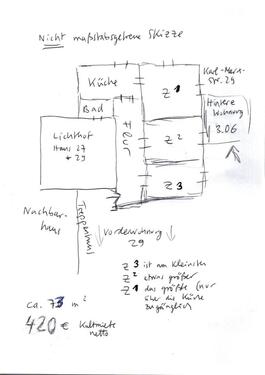 Nicht maßstabsgetreue Skizze
Küche
Z 1
Karl-Marx-
Str. 29
Bad
Flur
Hintere
Wohnung
3.06
Lichthof
Haus 27
+ 29
Z 2
Z 3
Nachbar-
haus
Treppenhaus
Vorderwohnung
29
Z 3 ist am kleinsten
Z 2 etwas größer
Z 1 das größte (nur
über die Küche
zugänglich
ca. 73 m²
420 € Kaltmiete
netto